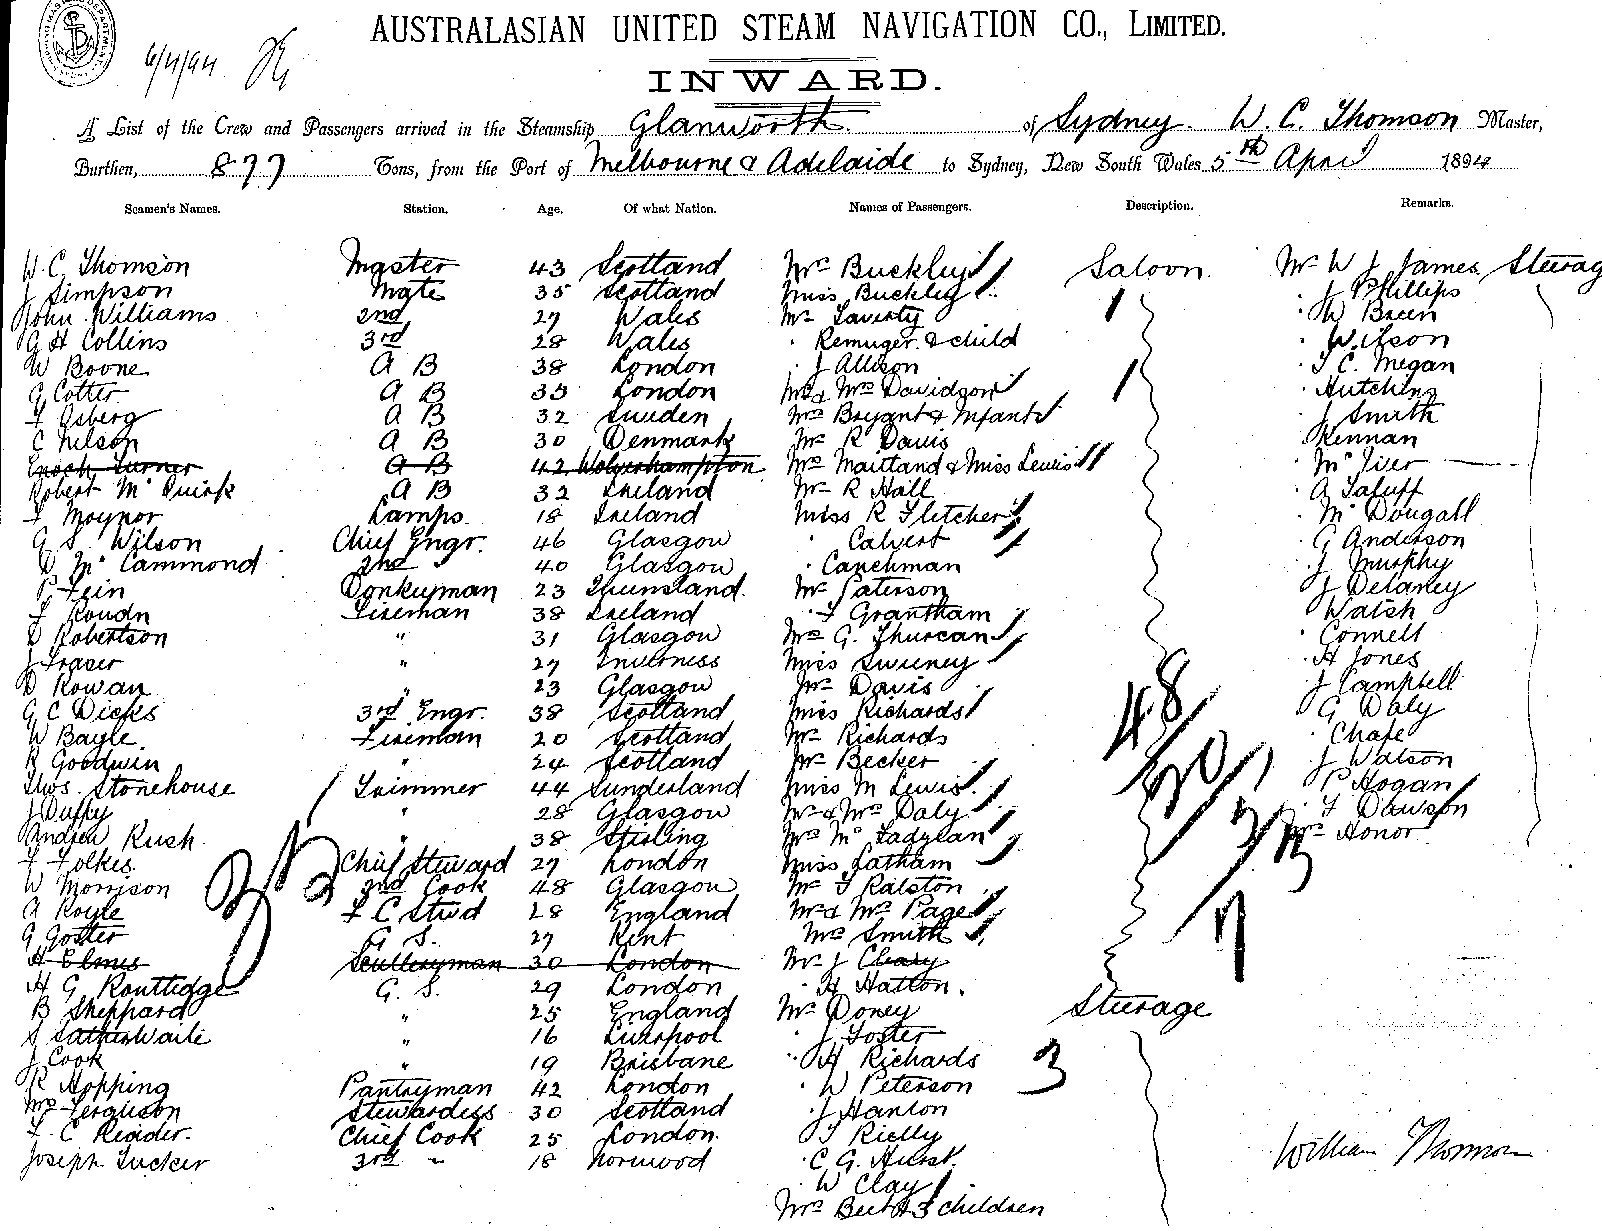 AUSTRALASIAN UNITED STEAM NAVIGATION CO., LIMITED.
6/4/94
INWARD.
A List of the Crew and Passengers arrived in the Steamship Glanworth of Sydney W. C. Thomson Master,
Burthen, 877 Tons, from the Port of Melbourne & Adelaide to Sydney, New South Wales 5th April 1894
Seamen's Names. Station. Age. Of what Nation. Names of Passengers. Description. Remarks.
W. C. Thomson Master 43 Scotland Mrs Buckley Saloon. Mr W J James Steerag
J Simpson Mate 35 Scotland Miss Buckley J Phillips
John Williams 2nd 27 Wales Mr Laverty W Breen
G H Collins 3rd 28 Wales " Remuger & child Wilson
W Boone A B 38 London J Allison T C. Megan
G Cotter A B 33 London Mr & Mrs Davidson Hutchins
F Osberg A B 32 Sweden Mrs Bryant & Infant J Smith
C Nelson A B 30 Denmark Mr R Davis Kennan
Enoch Turner A B 42 Wolverhampton Mrs Maitland & Miss Lewis McIver
Robert McQuirk A B 32 Ireland Mr R Hall
Lamps 18 Ireland Miss R Fletcher McDougall
G S Wilson Chief Engr. 46 Glasgow Calvert G Anderson
D McCammond 2nd 40 Glasgow Canchman J Murphy
P Fein Donkeyman 23 Queensland. Mr Paterson J Delaney
Fireman 38 Ireland F Grantham Walsh
D Robertson " 31 Glasgow Mrs G. Thurcan Connell
J Fraser " 27 Inverness Miss Sweeney H Jones
D Rowan " 23 Glasgow Mr Davis J Campbell
G C Dicks 3rd Engr. 38 Scotland Miss Richards G Daly
W Bayle Fireman 20 Scotland Mr Richards Chafe
R Goodwin " 24 Scotland Mr Becker J Watson
Thos. Stonehouse Trimmer 44 Sunderland Miss M Lewis P Hogan
J Duffy " 28 Glasgow Mr & Mrs Daly F Dawson
Andrew Rush " 38 Stirling Mrs McFadyean Mrs Honor
F Folkes Chief Steward 27 London Miss Latham
W Morrison 2nd Cook 48 Glasgow Mr F Ralston
A Royle F C Stwd 28 England Mr & Mrs Page
G Goster G S. 27 Kent Mrs Smith
H Elmes Sculleryman 30 London Mr J Cleary
H G Routtidge G. S. 29 London H Hatton.
B Sheppard " 25 England Mr Doney Steerage
S Satherwaite " 16 Liverpool J Foster
J Cook " 19 Brisbane H Richards 3
R Hopping Pantryman 42 London W Peterson
Mrs Ferguson Stewardess 30 Scotland J Hanlon
F. C Reader. Chief Cook 25 London. T Rielly
Joseph Tucker 3rd " 18 Norwood C G. Hurst William Thomson
W Clay
Mrs Burt & 3 children
35
48
20
7